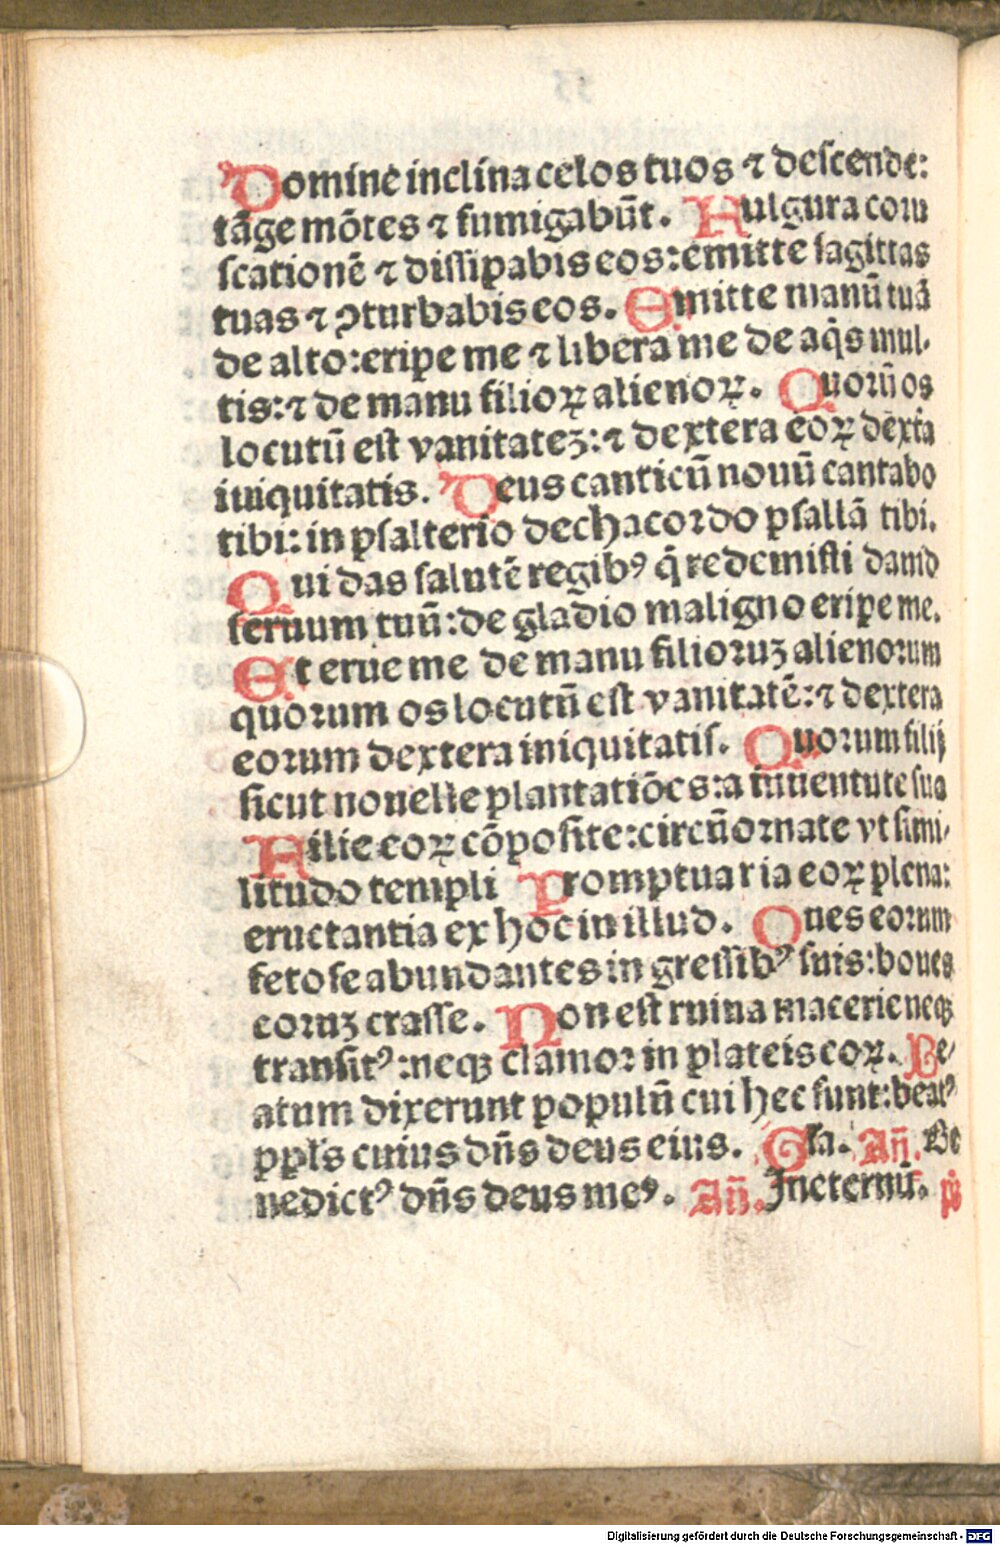 Domine inclina celos tuos ⁊ descende:
tāge mōtes ⁊ fumigabūt. Fulgura coru
scationē ⁊ dissipabis eos: emitte sagittas
tuas ⁊ ꝯturbabis eos. Emitte manū tuā
de alto: eripe me ⁊ libera me de aq̄s mul-
tis: ⁊ de manu filioꝝ alienoꝝ. Quorū os
locutū est vanitateʒ: ⁊ dextera eoꝝ dexťa
iniquitatis. Deus canticū nouū cantabo
tibi: in psalterio dechacordo psallā tibi.
Qui das salutē regibꝰ q̄ redemisti dauid
seruum tuū: de gladio maligno eripe me.
Et erue me de manu filioruʒ alienorum
quorum os locutū est vanitatē: ⁊ dextera
eorum dextera iniquitatis. Quorum filij
sicut nouelle plantatiōes: a iuuentute sua
Filie eoꝝ cōposite: circūornate vt simi-
litudo templi Promptuaria eoꝝ plena:
eructantia ex hoc in illud. Oues eorum
fetose abundantes in gressibꝰ suis: boues
eoruʒ crasse. Non est ruina macerie neqꝫ
transitꝰ: neqꝫ clamor in plateis eoꝝ. Be-
atum dixerunt populū cui hec sunt: beatꝰ
ppl's cuius dn̄s deus eius. Gl'a. An̄. Be
nedictꝰ dn̄s deus meꝰ. An̄. In eternū. pͥs
Digitalisierung gefördert durch die Deutsche Forschungsgemeinschaft - DFG